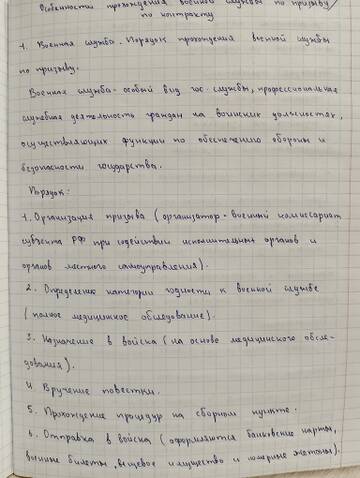 Особенности прохождения военной службы по призыву/
по контракту
1. Военная служба. Порядок прохождения военной службы
по призыву.
Военная служба - особый вид гос. службы, профессиональная
служебная деятельность граждан на воинских должностях,
осуществляющих функции по обеспечению обороны и
безопасности государства.
Порядок:
1. Организация призыва (организатор - военный комиссариат
субъекта РФ при содействии исполнительных органов и
органов местного самоуправления).
2. Определение категории годности к военной службе
(полное медицинское обследование).
3. Назначение в войска (на основе медицинского обсле-
дования).
4. Вручение повестки.
5. Прохождение процедур на сборном пункте.
6. Отправка в войска (оформляются банковские карты,
военные билеты, вещевое имущество и номерные жетоны).